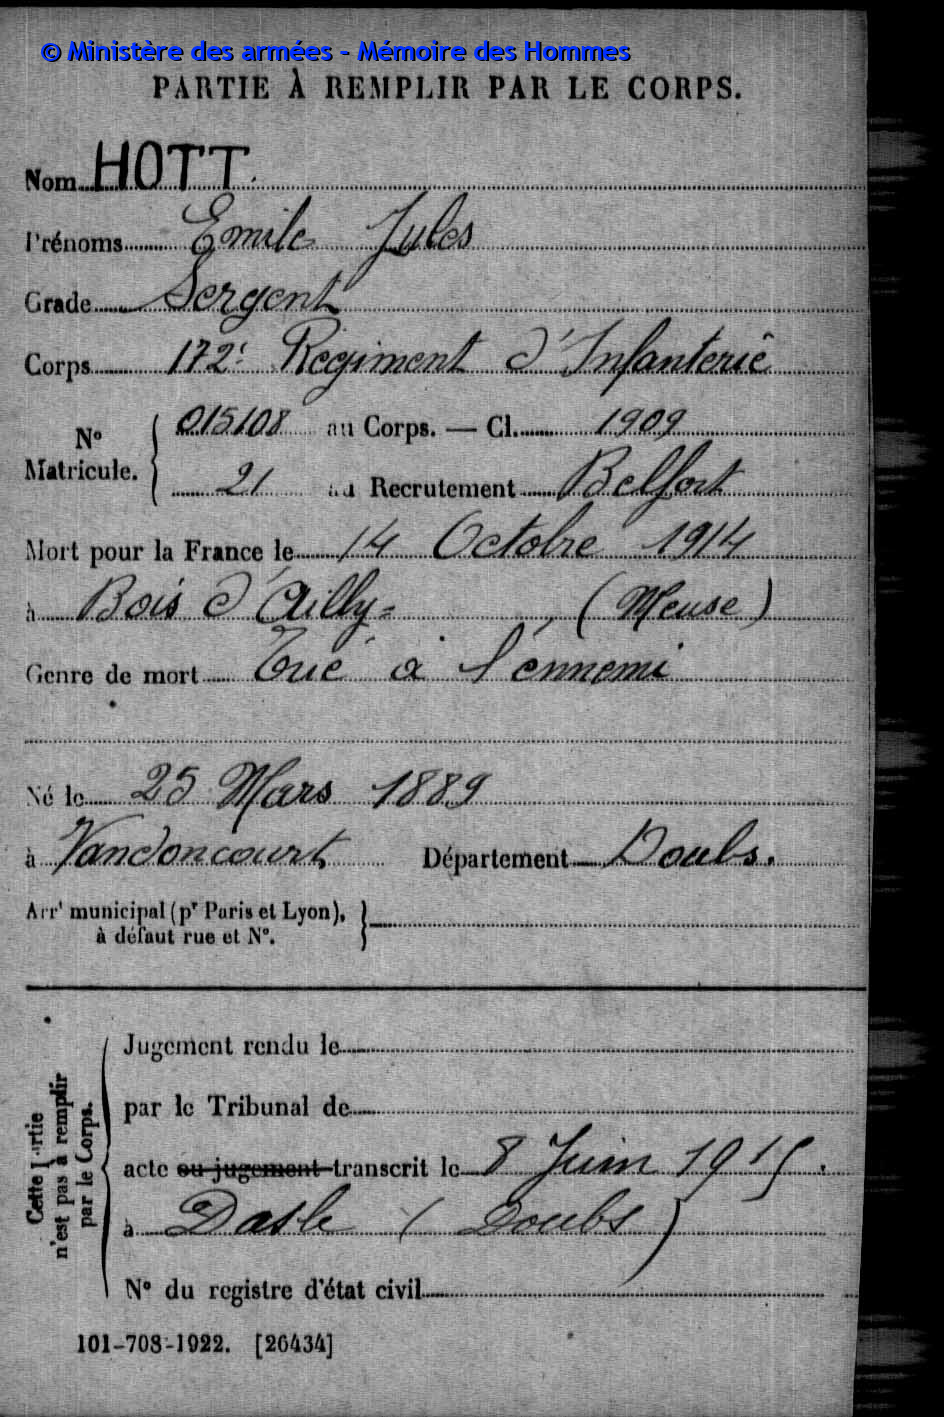 © Ministère des armées - Mémoire des Hommes
PARTIE À REMPLIR PAR LE CORPS.
Nom HOTT.
Prénoms Emile Jules
Grade Sergent
Corps 172e Regiment d'Infanterie
N° Matricule. 015108 au Corps. — Cl. 1909
21 au Recrutement Belfort
Mort pour la France le 14 Octobre 1914
à Bois d'Ailly (Meuse)
Genre de mort Tué à l'ennemi
Né le 25 Mars 1889
à Vandoncourt Département Doubs.
Arrt municipal (pr Paris et Lyon),
à défaut rue et N°.
Cette partie
n'est pas à remplir
par le Corps.
Jugement rendu le
par le Tribunal de
acte ou jugement transcrit le 8 Juin 1915.
à Dasle (Doubs)
N° du registre d'état civil
101-708-1922. [26434]